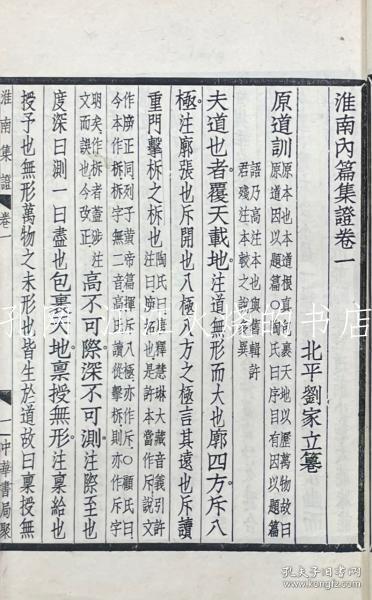 淮南內篇集證卷一
北平劉家立纂
原道訓
原本也本道根真包裹天地以歷萬物故曰
原道因以題篇○陶氏曰序目有因以題篇
語乃高注本也與舊輯許
君殘注本較之說多異
夫道也者覆天載地注道無形而大也廓四方斥八
極注廓張也斥開也八極八方之極言其遠也斥讀
重門擊柝之柝也
陶氏曰唐釋慧琳大藏音義引許
注曰廓拓也是許本當作斥說文
作㡿正同列子黃帝篇揮斥八極亦作斥○顧氏曰
今本作柝柝字無二音高氏讀從擊柝則亦作斥字
明矣作柝者蓋涉注
文而誤也今改正
高不可際深不可測注際至也
度深曰測一曰盡也包裹天地稟授無形注稟給也
授予也無形萬物之未形也皆生於道故曰稟授無
淮南集證
卷一
一
中華書局聚
孔夫子旧书网